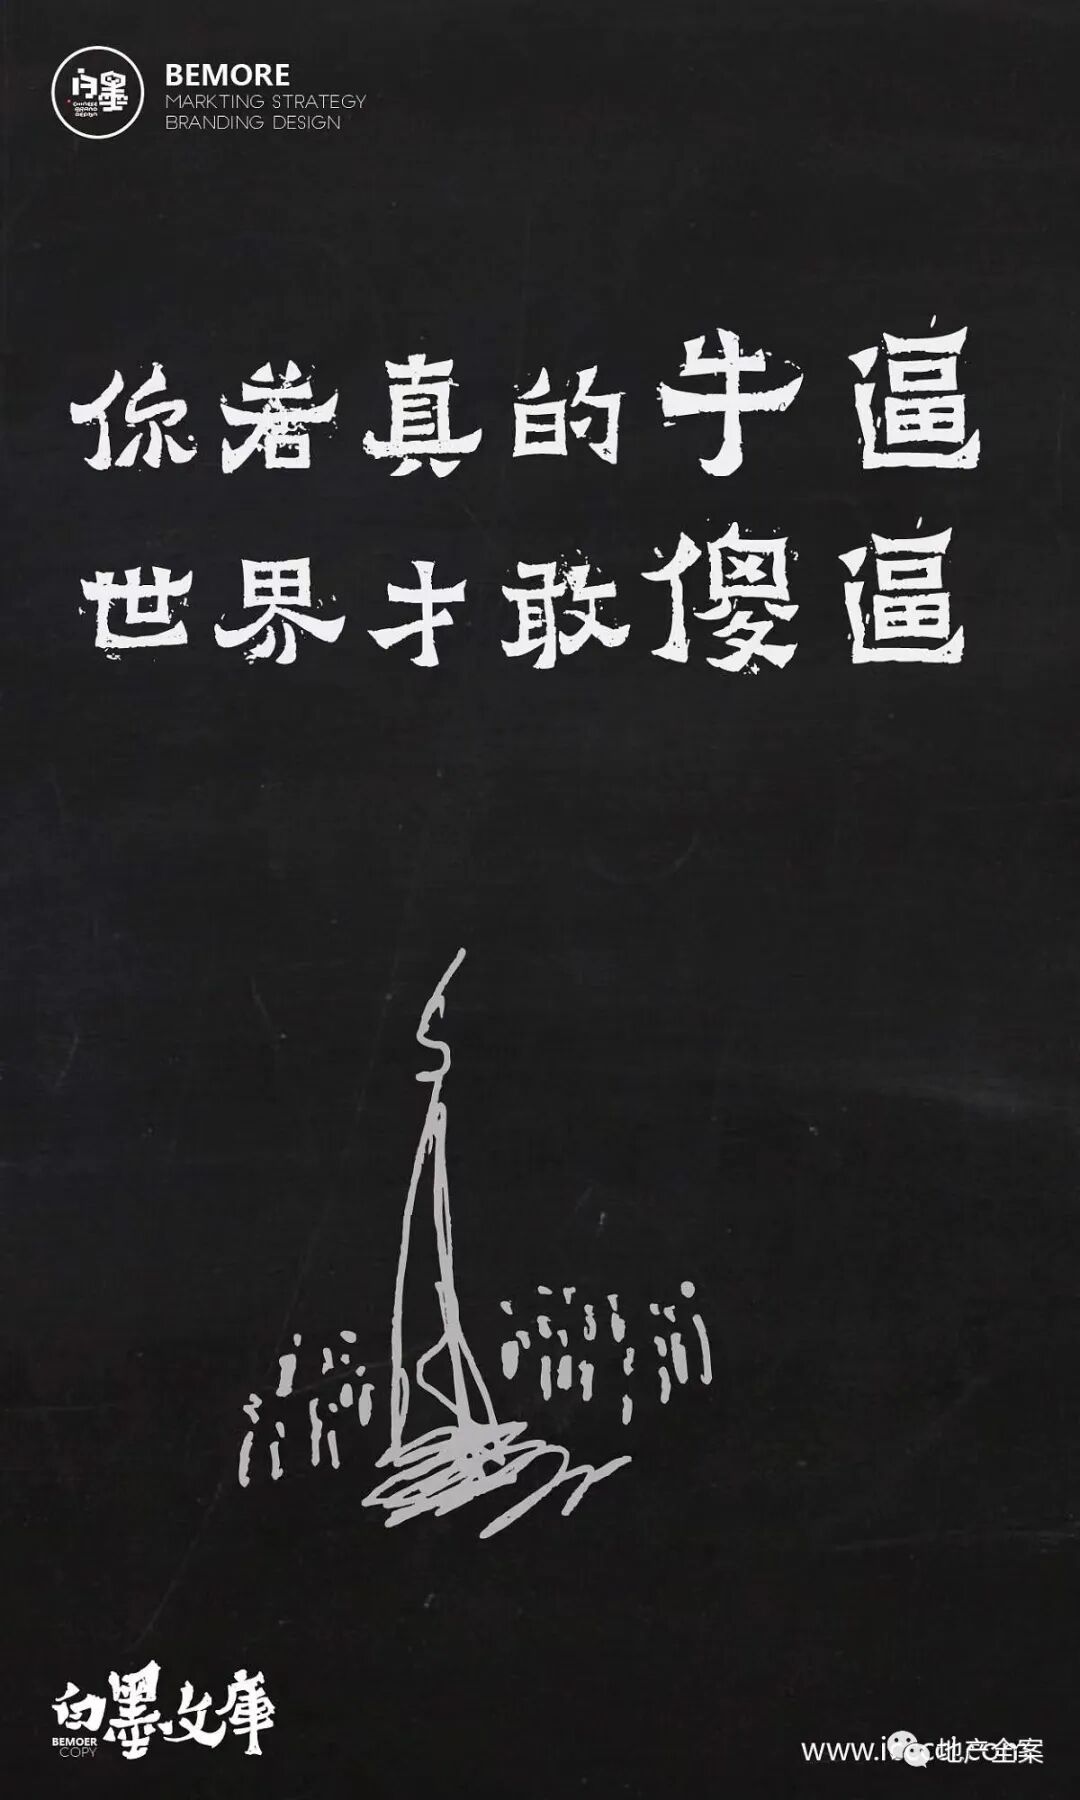 白墨
CHINESE
BRAND
DESIGN
BEMORE
MARKTING STRATEGY
BRANDING DESIGN
你若真的牛逼
世界才敢傻逼
白墨文庫
BEMOER
COPY
地产全案